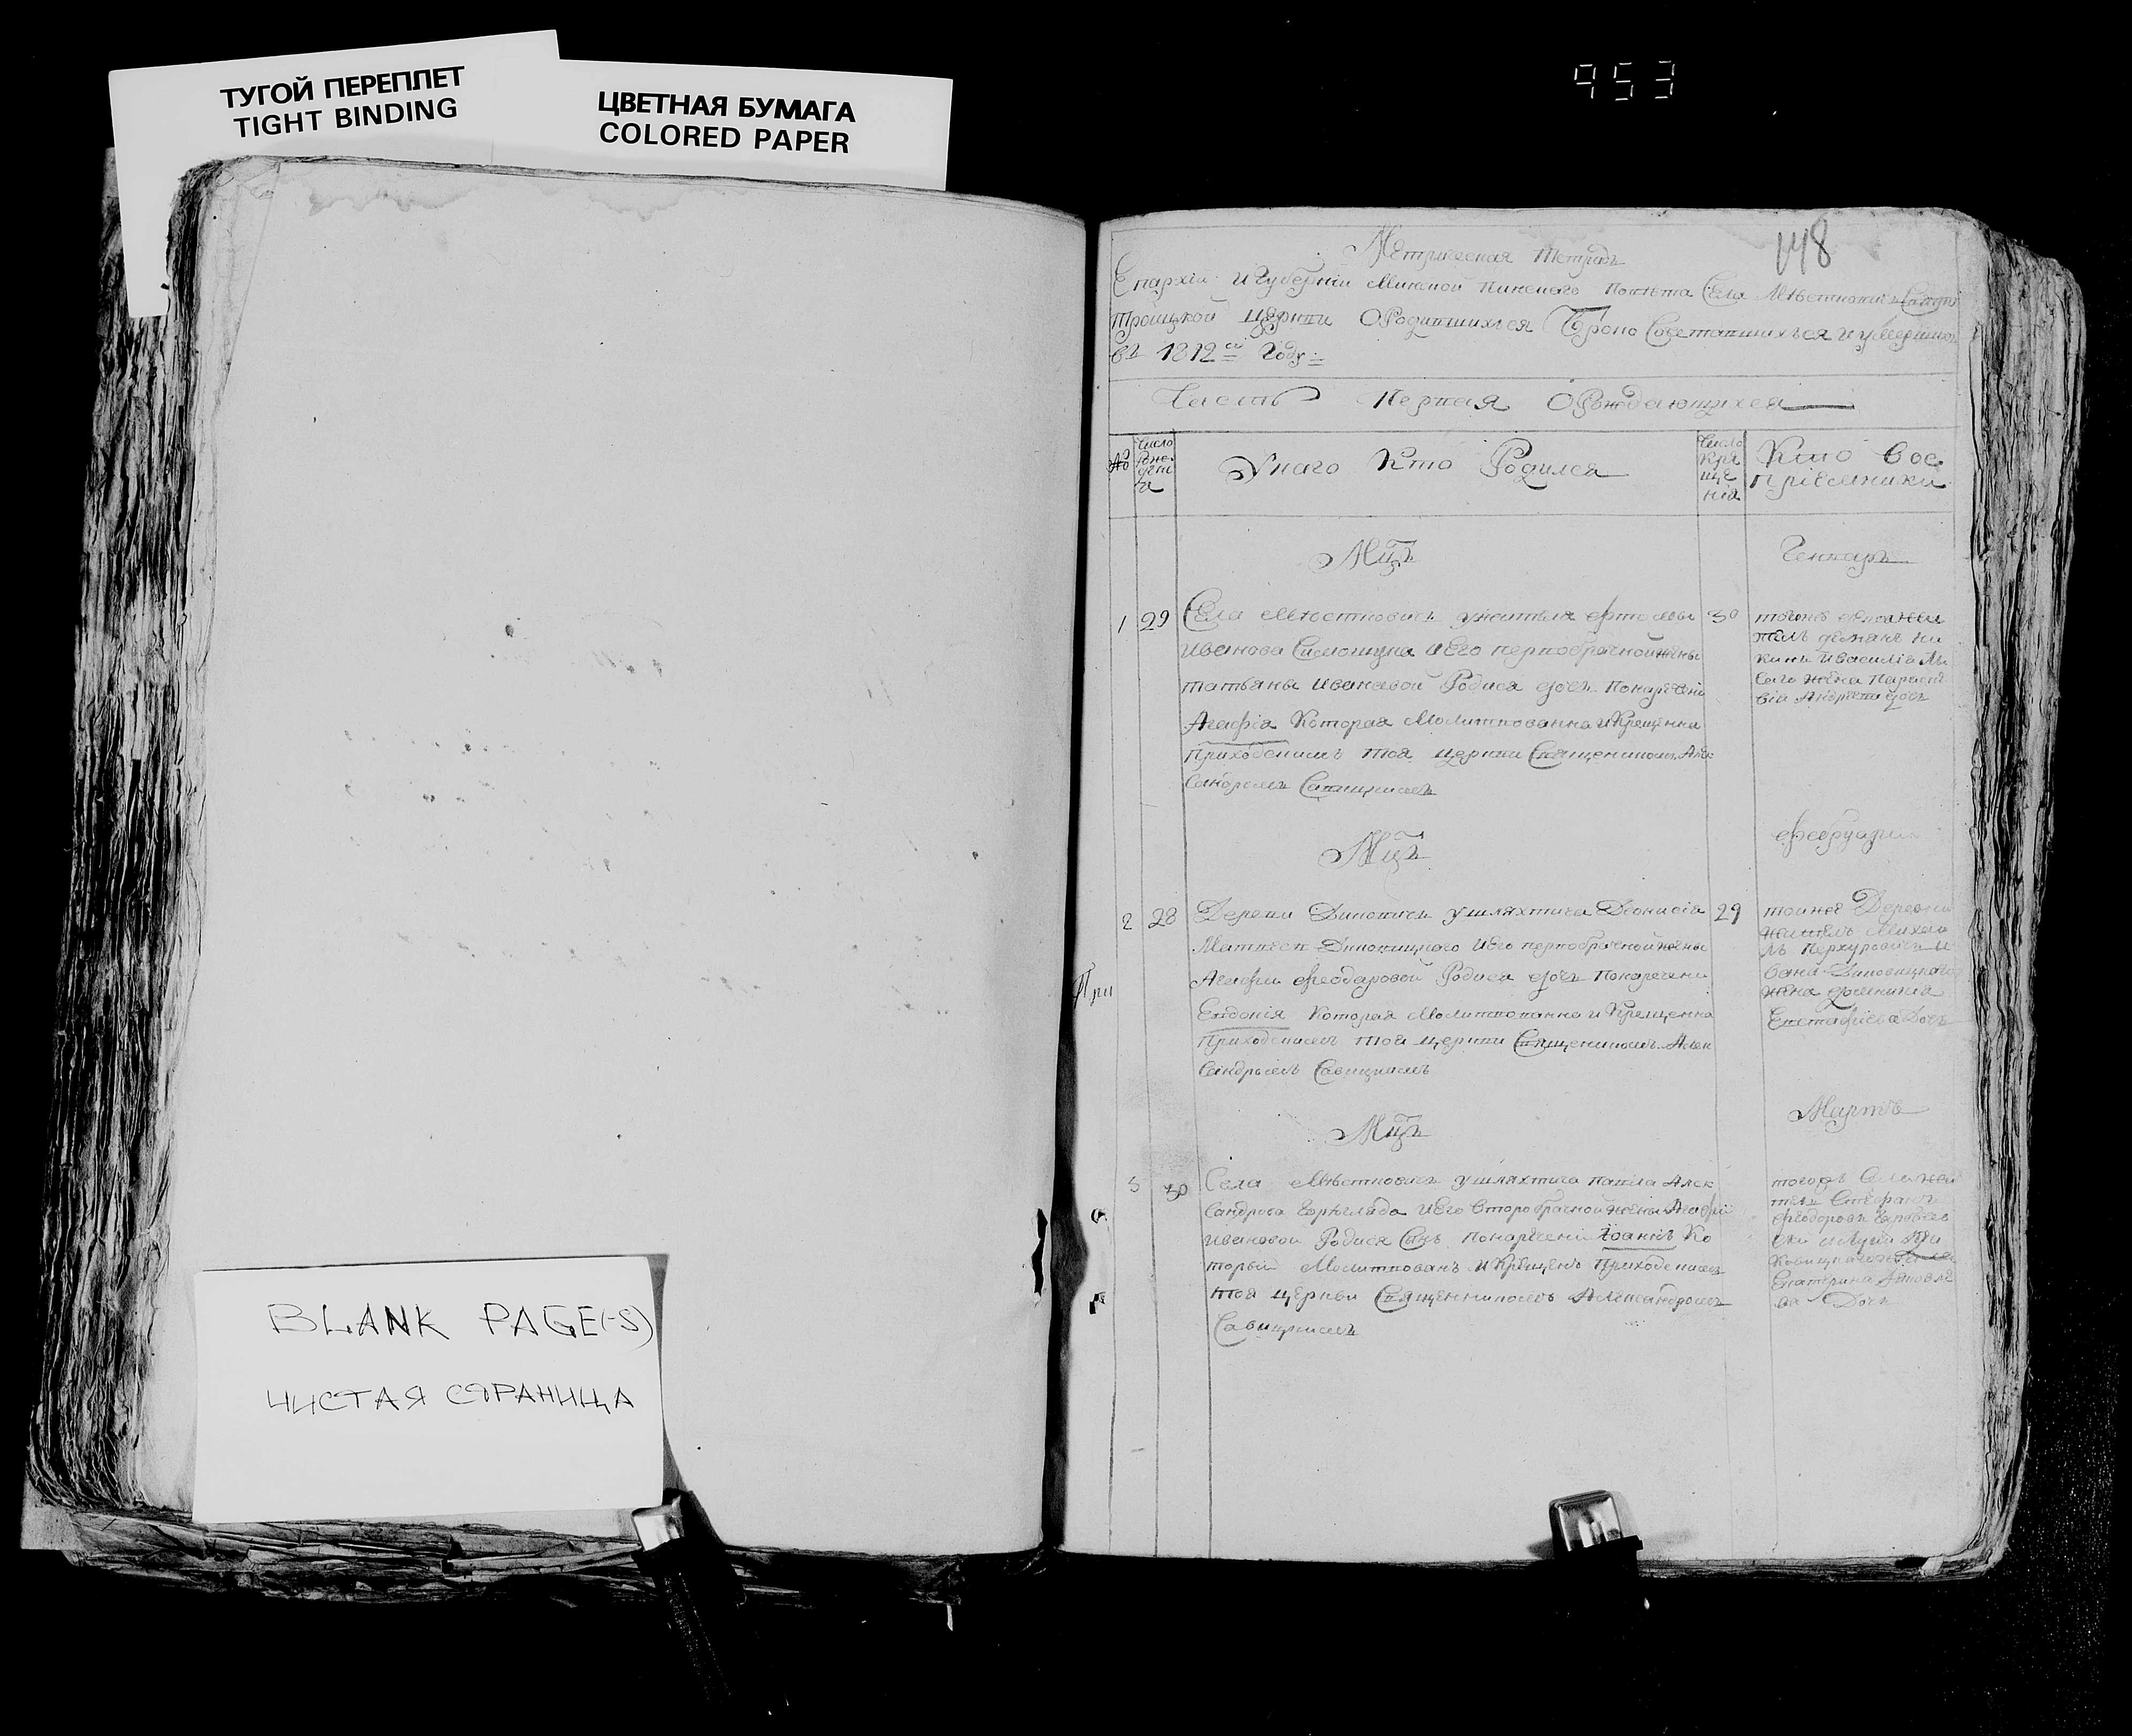 ТУГОЙ ПЕРЕПЛЕТ
TIGHT BINDING
ЦВЕТНАЯ БУМАГА
COLORED PAPER
953
148
Метрическая тетрадь
Епархіи и Губерніи Минской Пинскаго Повѣта Села Мѣстковичъ
Троицкой церкви О Родившихъся Брако Сочетавшихъся и умерших
въ 1812 Году
Часть Первая О Рождающихся
№
Число рожденія
У каго Кто Родился
Число
кре
ще
нія
Кто Вос
пріемники
Мцъ
Генваръ
1 29 Села Мѣстковичъ ужителя
30
Иванова и Его первобрачной жены
Татьяны Ивановой Родися дочь Понаречени
Агафія Которая Молитвованна и Крещенна
Приходскимъ тоя церкви Священикомъ Алек
сандромъ Савицкимъ
и Василія
жена Параске
вія дочь
Мцъ
Февруарии
2 28 Деревни Диковичъ ушляхтича Деонисія
29
Диковицкого и Его первобрачной жены
Агафіи Феодаровой Родися дочь Понаречени
Евдокія Которая Молитвованна и Крещенна
Приходскимъ тоя церкви Священикомъ Алек
сандромъ Савицкимъ
При
тоиже Деревни
житель Михаи
лъ
вана Диковицкаго
жена
Евстафіева Дочь
Мцъ
Мартъ
3 30 Села Мѣстковичъ ушляхтича Павла Алек
сандрова и Его второбрачной жены Агафіи
Ивановой Родися Сынъ Понаречени Іоаннъ Ко
торый Молитвованъ и Крещенъ Приходскимъ
тоя церкви Священникомъ Александромъ
Савицкимъ
Стефанъ
Феодоровъ
Екатерина Яковле
ва Дочь
BLANK PAGE(-S)
ЧИСТАЯ СТРАНИЦА